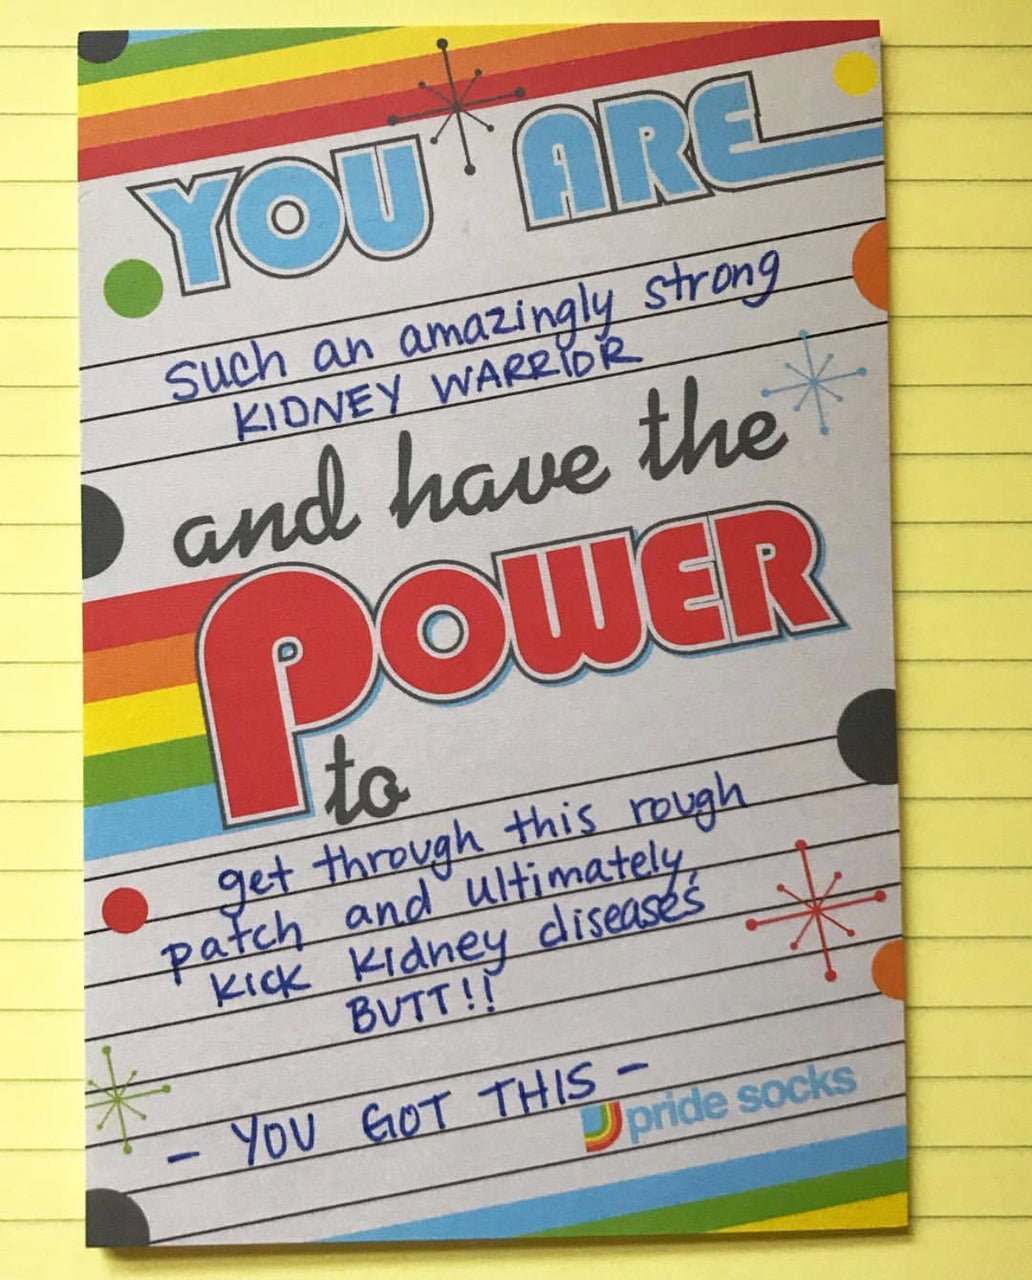 YOU ARE
such an amazingly strong
KIDNEY WARRIOR
and have the
POWER
to
get through this rough
patch and ultimately,
kick kidney diseases
BUTT!!
- YOU GOT THIS -
pride socks